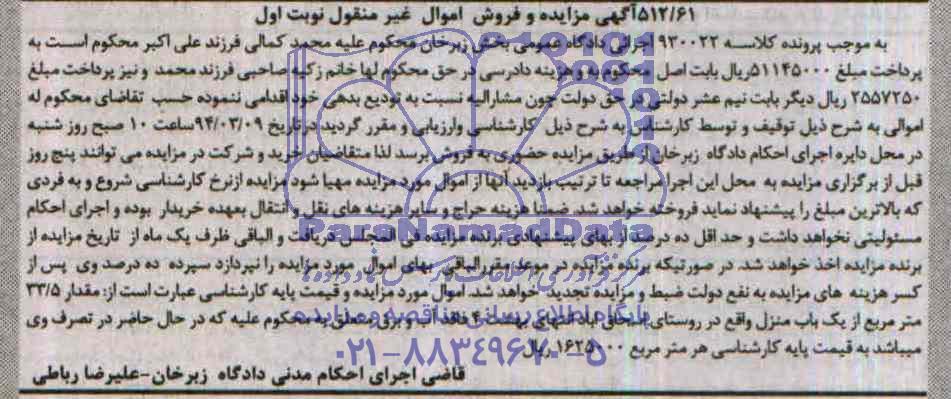 ۵۱۲/۶۱آگهی مزایده و فروش اموال غیر منقول نوبت اول
به موجب پرونده کلاسه ۹۳۰۰۲۲ اجرائی دادگاه عمومی بخش زبرخان محکوم علیه محمد کمالی فرزند علی اکبر محکوم است به
پرداخت مبلغ ۵۱۱۴۵۰۰۰ریال بابت اصل محکوم به و هزینه دادرسی در حق محکوم لها خانم زکیه صاحبی فرزند محمد و نیز پرداخت مبلغ
۲۵۵۷۲۵۰ ریال دیگر بابت نیم عشر دولتی در حق دولت چون مشارالیه نسبت به تودیع بدهی خود اقدامی ننموده حسب تقاضای محکوم له
اموالی به شرح ذیل توقیف و توسط کارشناس به شرح ذیل کارشناسی وارزیابی و مقرر گردید در تاریخ ۹۴/۰۳/۰۹ساعت ۱۰ صبح روز شنبه
در محل دایره اجرای احکام دادگاه زبرخان از طریق مزایده حضوری به فروش برسد لذا متقاضیان خرید و شرکت در مزایده می توانند پنج روز
قبل از برگزاری مزایده به محل این اجرا مراجعه تا ترتیب بازدید آنها از اموال مورد مزایده مهیا شود مزایده ازنرخ کارشناسی شروع و به فردی
که بالاترین مبلغ را پیشنهاد نماید فروخته خواهد شد. ضمنا هزینه حراج و سایر هزینه های نقل و انتقال بعهده خریدار بوده و اجرای احکام
مسئولیتی نخواهد داشت و حد اقل ده درصد از بهای پیشنهادی برنده مزایده فی المجلس دریافت و الباقی ظرف یک ماه از تاریخ مزایده از
برنده مزایده اخذ خواهد شد. در صورتیکه برنده مزایده در موعد مقرر الباقی بهای اموال مورد مزایده را نپردازد سپرده ده درصد وی پس از
کسر هزینه های مزایده به نفع دولت ضبط و مزایده تجدید خواهد شد. اموال مورد مزایده و قیمت پایه کارشناسی عبارت است از: مقدار ۳۳/۵
متر مربع از یک باب منزل واقع در روستای اسحق آباد انتهای بهشت ۴ فاقد آب و برق متعلق به محکوم علیه که در حال حاضر در تصرف وی
میباشد به قیمت پایه کارشناسی هر متر مربع ۱۶۲۵۰۰۰ ریال
قاضی اجرای احکام مدنی دادگاه زبرخان-علیرضا رباطی
ParsNamadData
پایگاه اطلاع رسانی مناقصه و مزایده
۰۲۱-۸۸۳۴۹۶۷۰-۵